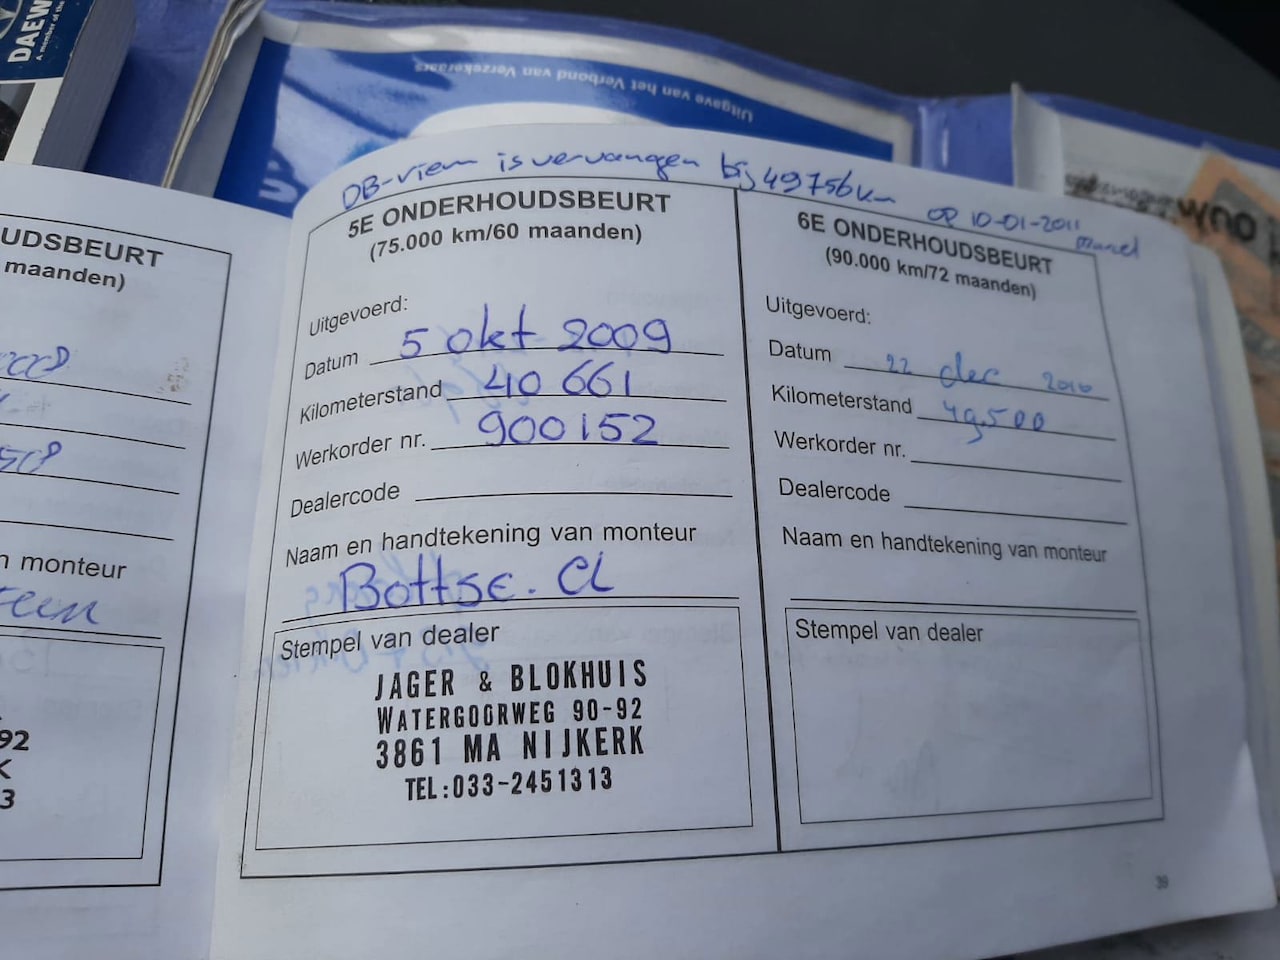 DAEW
A member of the
Uitgave van het Verbond van Verzekeraars
UDSBEURT
maanden)
n monteur
92
K
3
DB-riem is vervangen bij 49756km op 10-01-2011
5E ONDERHOUDSBEURT
(75.000 km/60 maanden)
Uitgevoerd:
Datum 5 okt 2009
Kilometerstand 40 661
Werkorder nr. 900152
Dealercode
Naam en handtekening van monteur
Stempel van dealer
JAGER & BLOKHUIS
WATERGOORWEG 90-92
3861 MA NIJKERK
TEL:033-2451313
6E ONDERHOUDSBEURT
(90.000 km/72 maanden)
Uitgevoerd:
Datum 22 dec 2010
Kilometerstand 49.500
Werkorder nr.
Dealercode
Naam en handtekening van monteur
Stempel van dealer
39